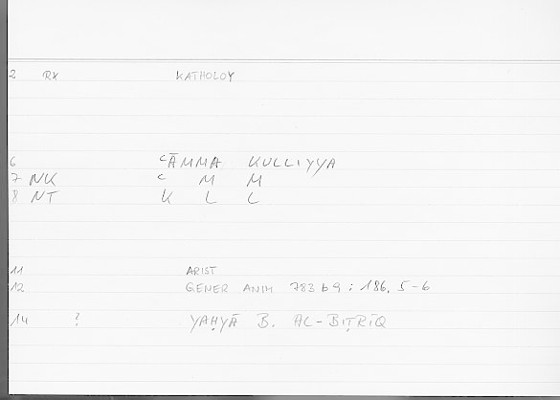 2 RX KATHOLOY
6 ʿĀMMA KULLIYYA
7 NK ʿ M M
8 NT K L L
11 ARIST
12 GENER ANIM 783 b 9 ; 186, 5-6
14 ? YAḤYĀ B. AL-BIṬRĪQ